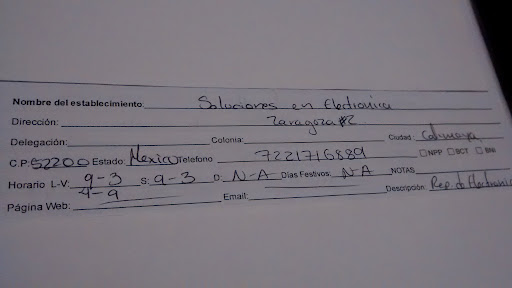 Nombre del establecimiento: Soluciones en Electronica
Dirección: Zaragoza #2
Delegación: Colonia: Ciudad: Calimaya
C.P. 52200 Estado: Mexico Telefono 7221716889 NPP BCT
Horario L-V: 9-3 S: 9-3 D: N-A Días Festivos: N A NOTAS
4-9
Página Web: Email: Descripción: Rep. de Electronic